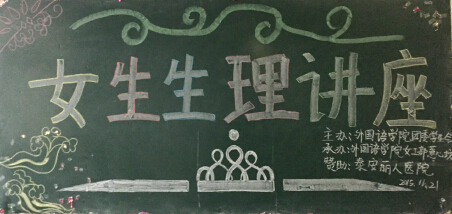 女生生理讲座
主办:外国语学院团委学生会
承办:外国语学院女工部
赞助:泰安丽人医院
2015.11.21